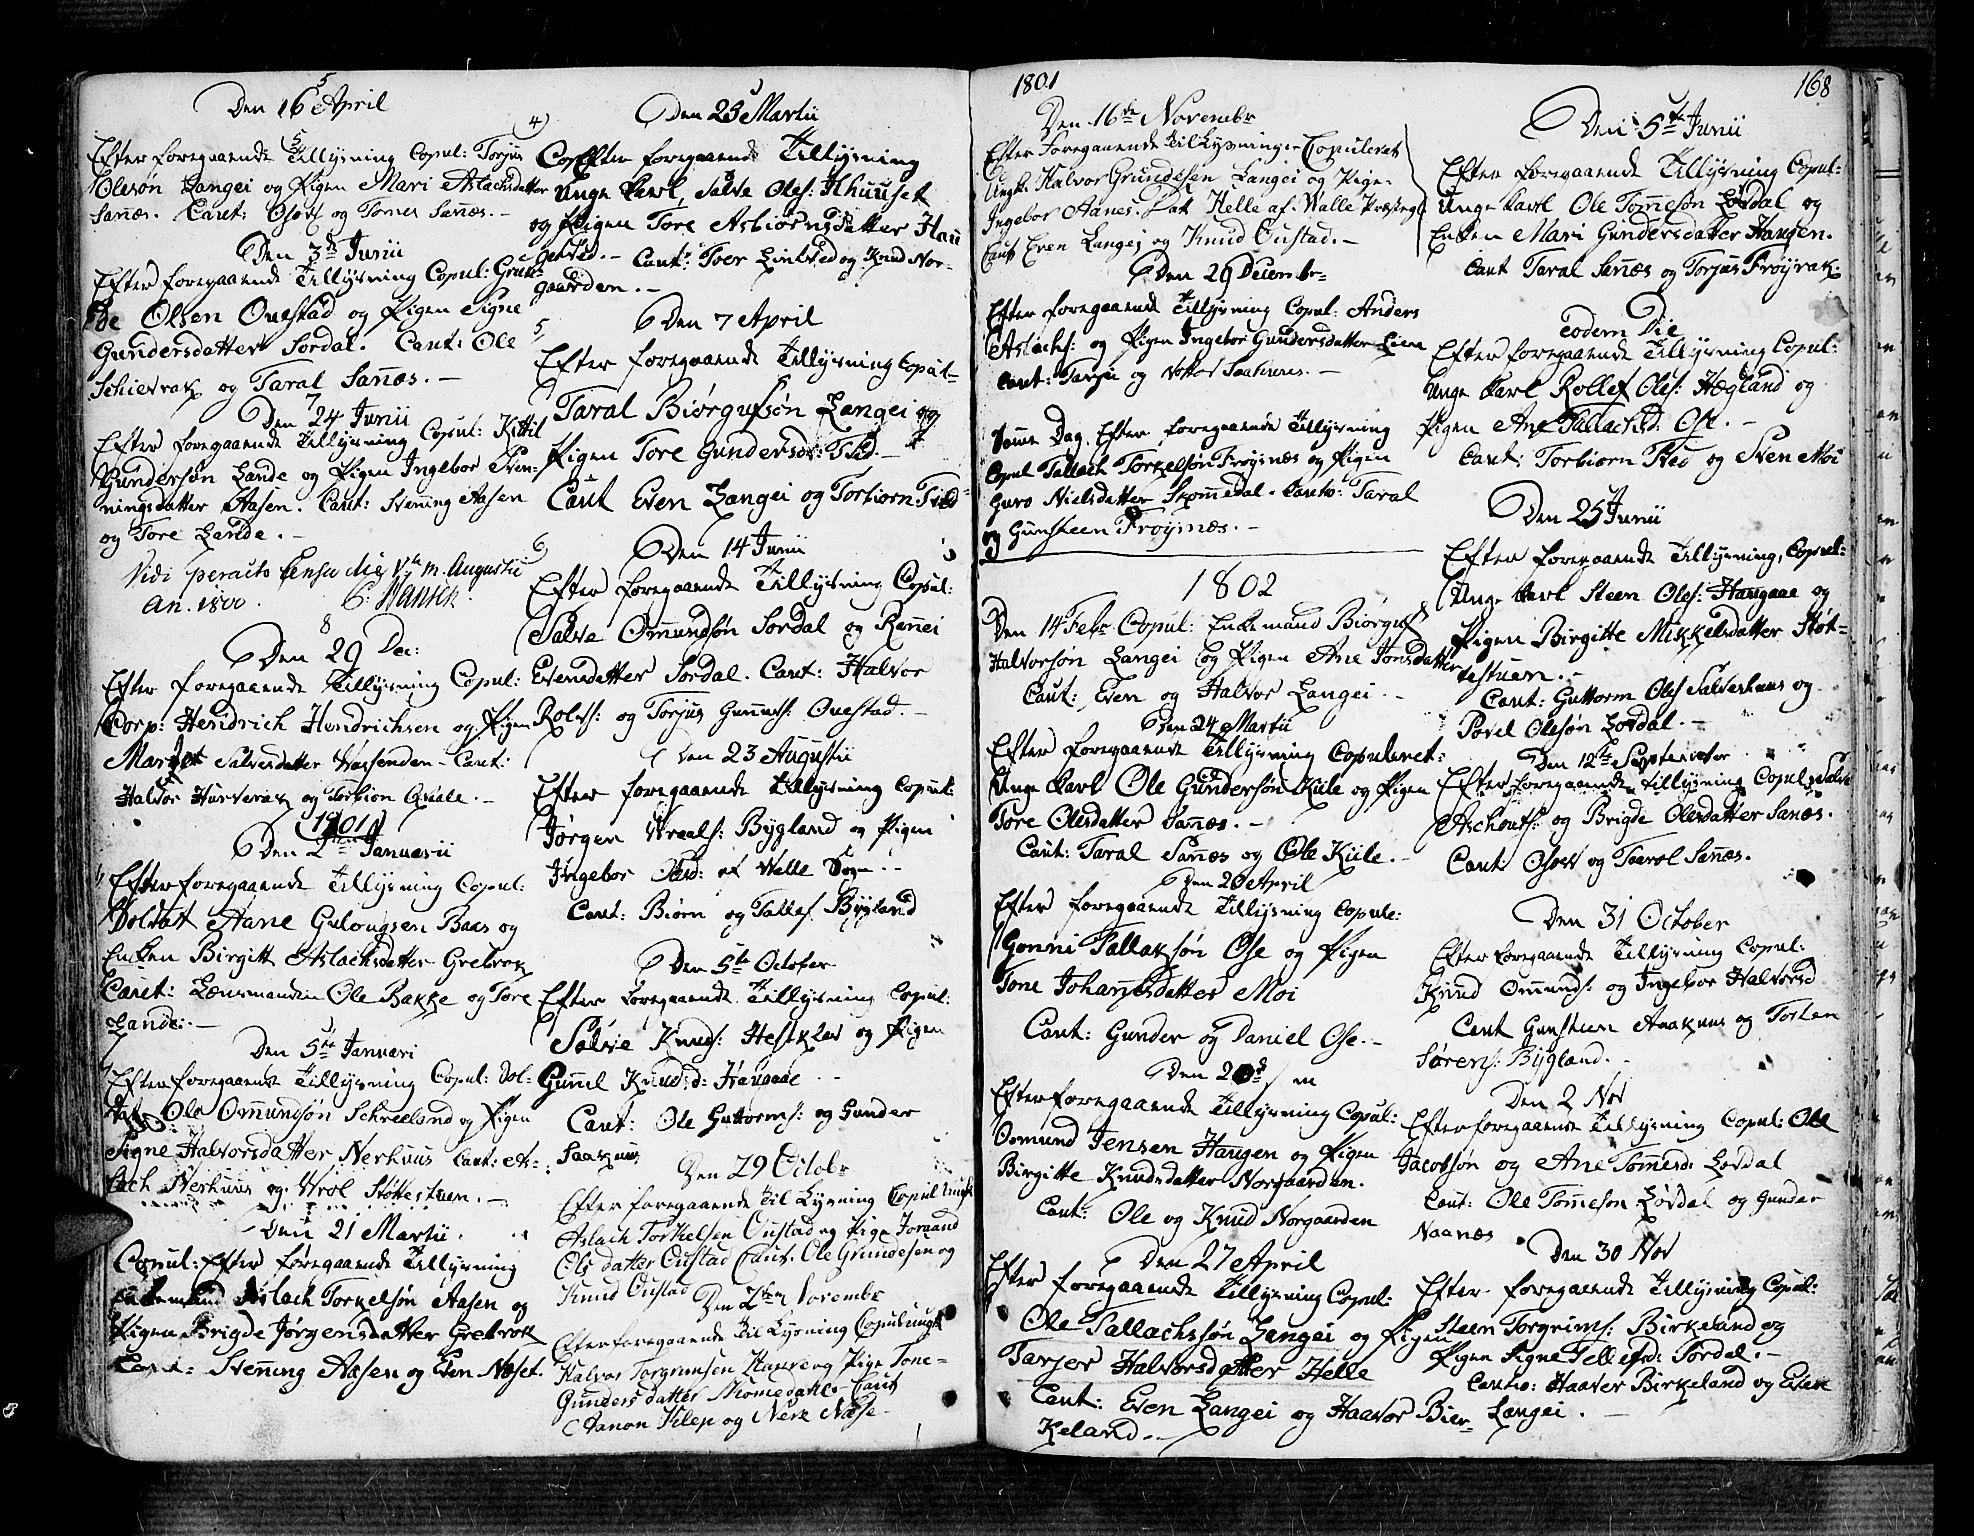 5
Den 16 April
Efter foregaaende Tillysning Copul: Torjus
Olesøn Langei og Pigen Mari Aslachsdatter
Sanæs. Caut: Osov og Tomes Sanæs. —
Den 3de Junii
Efter foregaaende Tillysning Copul: Grun-
de Olsen Ouestad og Pigen Signe
Gundersdatter Sordal. Caut: Ole
Schievrak og Taral Sanæs. —
7
Den 24 Junii
Efter foregaaende Tillysning Copul: Kittil
Gundersøn Lande og Pigen Ingebor Sven-
ningsdatter Aasen. Caut: Svening Aasen
og Tore Lande. —
Vidi peracto censu die m. Augusti
An. 1800.
8
Den 29 Dec:
Efter foregaaende Tillysning Copul:
Corp: Hendrich Hendrichsen og Pigen
Margit Salvesdatter Caut:
Halvor og Torbion Qvale. —
1801
Den 2den Januarii
1 Efter foregaaende Tillysning Copul:
Soldat Aane Gulougsen Baas og
Enken Birgitt Aslachsdatter Grebrok
Caut: Lænsmanden Ole Bakke og Tore
Lande. —
Den 5te Januari
Efter foregaaende Tillysning Copul: Sol-
dat Ole Omundsøn og Pigen
Signe Halvorsdatter Nerhuus Caut: As-
lach Nerhuus og Wrol Støttestuen. —
Den 21 Martii
Copul: Efter foregaaende Tillysning
Enkemand Aslach Torkelsøn Aasen og
Pigen Brigde Jørgensdatter Grebrok
Caut: Svenning Aasen og Even Næset.
4) Den 23 Martii
Efter foregaaende Tillysning
Unge Karl, Salve Oles: Khuuset
og Pigen Tore Asbiørnsdatter Hau
gested. — Caut: Toer Lintved og Knud Nor-
gaarden. —
5 Den 7 April
Efter foregaaende Tillysning Copul-
Taral Biørgufsøn Langei og
Pigen Tore Gundersdr: Tved. —
Caut Even Langei og Torbiorn Tved
6) Den 14 Junii
Efter foregaaende Tillysning Copul:
Salve Omundsøn Sordal og Rannei
Evensdatter Sordal. Caut: Halvor
Rolvs: og Torjus Gunuls: Ouestad. —
Den 23 Augustii
Efter foregaaende Tillysning Copul:
Jørgen Wraals: Bygland og Pigen
Ingebor af Walle Sogn. —
Caut: Biørn og Tallef Bygland
Den 5te October
Efter foregaaende Tillysning Copul:
Salvie Knuds: Hestklev og Pigen
Gunnil Knudsd: Haugaae —
Caut: Ole Guttorms: og Gunder
Saakuus
Den 29 Octobr
Efter foregaaende Til Lysning Copul
Aslach Torkelsen Oustad og Pige Joraand
Ols datter Oustad Caut. Ole Grundesen og
Knud Oustad
Den 2den Novembr
Efter foregaaende Til Lysning Copul ungk
Halvor Torgrimsen og Pige Tone-
Gunders datter Caut
Aanon Kilep og Næse —
1801
Den 16de Novembr
Efter foregaaende Til Lysninger Copuleret
Ungk: Halvor Grundesen Langei og Pige
Ingebor Aanes. Dat Helle af Walle Præstegl
Caut Even Langei og Knud Oustad. —
Den 29 Decembr
Efter foregaaende Tillysning Copul: Anders
Aslachs: og Pigen Ingebor Gundersdatter Lien
Caut: Tarjei og —
Samme Dag, Efter foregaaende Tillysning
Copul Tallach Torkelsøn Frøysnæs og Pigen
Guro Nielsdatter Skomedal. Caut: Taral
og Gunsteen Frøysnæs. —
1802
Den 14 Febr Copul: Enkemand Biørguf
Halvorsøn Langei og Pigen Ane Jonsdatter
Caut: Even og Halvor Langei. —
Den 24 Martii
Efter foregaaende Tillysning Copuleret:
Unge Karl Ole Gundersøn Kiile og Pigen
Tore Olesdatter Sanæs. —
Caut: Taral Sanæs og Ole Kiile. —
Den 20 April
Efter foregaaende Tillysning Copule:
Gonni Tallaksøn Ose og Pigen
Tone Johannesdatter Moi
Caut: Gunder og Daniel Ose. —
Efter foregaaende Tillysning Copul:
Osmund Jensen Haugen og Pigen
Birgitte Knudsdatter Norgaarden.
Caut: Ole og Knud Norgaarden
Den 27 April
Efter foregaaende Tillysning Copul:
Ole Tallachssøn Langei og Pigen
Tarjer Halvorsdatter Helle
Caut: Even Langei og Haavor Bier-
keland. —
168
Den 5te Junii
Efter foregaaende Tillysning Copul:
Unge Karl Ole Tomesøn Løvdal og
Enken Mari Gundersdatter Haugen.
Caut Taral Sanæs og Torjus Frøyrak.
eodem Die
Efter foregaaende Tillysning Copul:
Unge Karl Rollef Oles: Hægland og
Pigen Ane Tallachsd: Ose. —
Caut: Torbiorn Tved og Sven Moi
Den 25 Junii
Efter foregaaende Tillysning, Copul:
Unge Karl Steen Oles: Haugaae og
Pigen Birgitte Mikkelsdatter Støt-
testuen. —
Caut: Guttorm Oles Salverhuus og
Povel Olesøn Lovdal. —
Den 12te September
Efter foregaaende Tillysning Copul: Salve
Aschouts: og Brigde Olesdatter Sanæs.
Caut Osov og Taarol Sanæs.
Den 31 October
Efter foregaaende Tillysning Copul:
Knud Omunds: og Ingebor Halvorsd
Caut Gunsteen Aakuus og Torlen
Sørens: Bygland. —
Den 2 Nov
Efter foregaaende Tillysning Copul: Ole
Jacobsøn og Ane Tomesd: Lovdal
Caut: Ole Tomeson Løvdal og Gunder
Naanæs
Den 30 Nov
Efter foregaaende Tillysning Copul:
Steen Torgrims: Birkeland og
Pigen Signe Tellefsd: Sordal. —
Cautio: Haaver Birkeland og Even
Langei. —